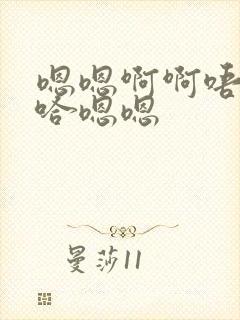 嗯嗯啊啊唔
哈嗯嗯
曼莎11